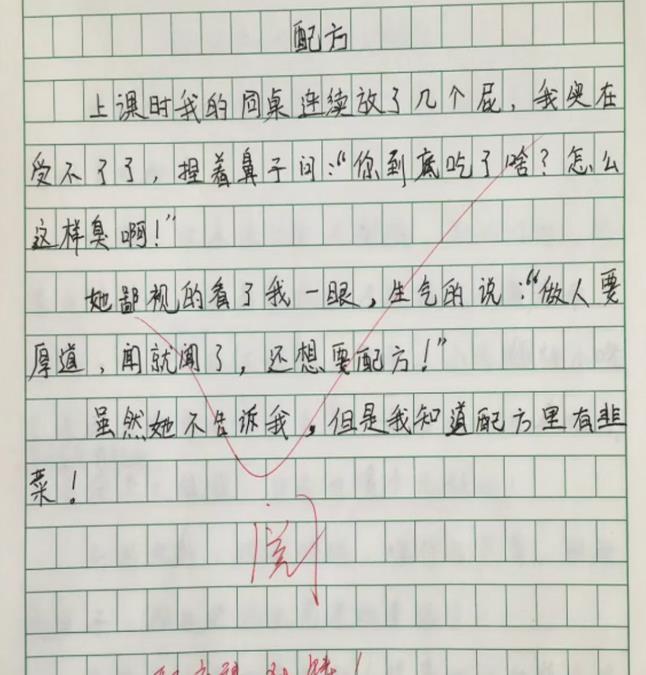 配方
上课时我的同桌连续放了几个屁，我实在
受不了了，捏着鼻子问："你到底吃了啥？怎么
这样臭啊！"
她鄙视的看了我一眼，生气的说："做人要
厚道，闻就闻了，还想要配方！"
虽然她不告诉我，但是我知道配方里有韭
菜！
阅